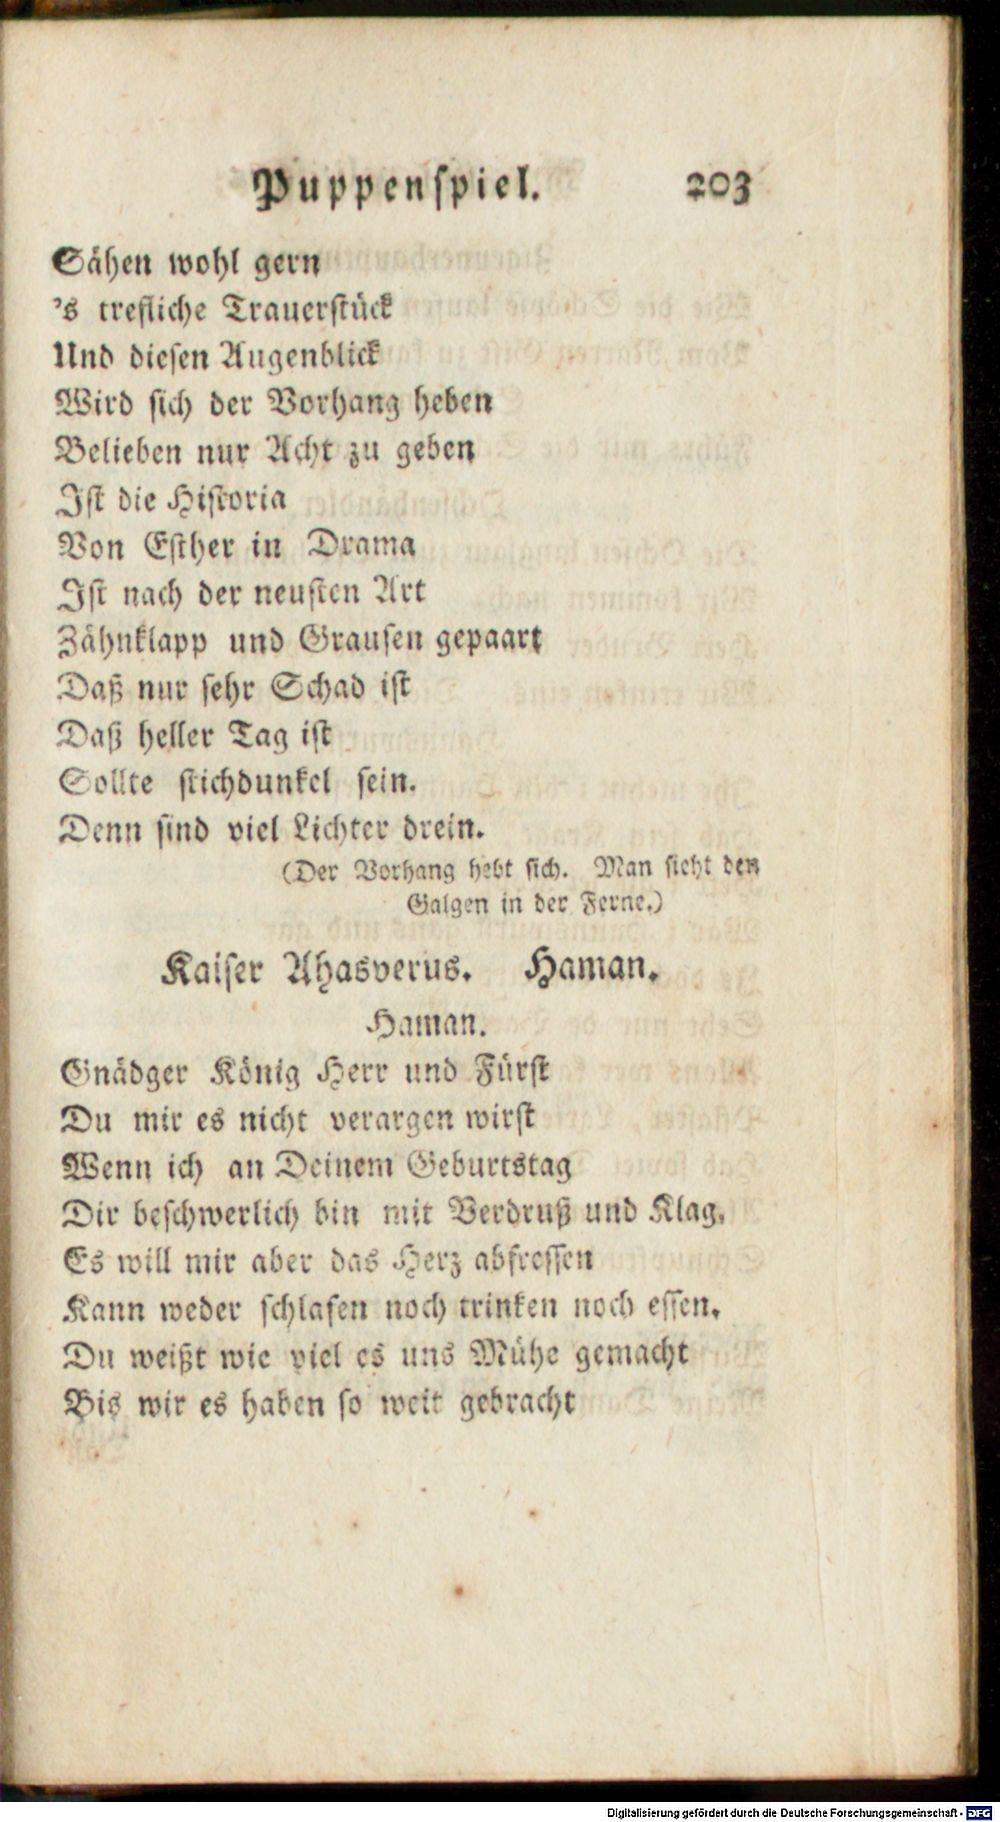 Puppenspiel. 203
Sähen wohl gern
's trefliche Trauerstück
Und diesen Augenblick
Wird sich der Vorhang heben
Belieben nur Acht zu geben
Ist die Historia
Von Esther in Drama
Ist nach der neusten Art
Zähnklapp und Grausen gepaart
Daß nur sehr Schad ist
Daß heller Tag ist
Sollte stichdunkel sein.
Denn sind viel Lichter drein.
(Der Vorhang hebt sich. Man sieht den
Galgen in der Ferne.)
Kaiser Ahasverus. Haman.
Haman.
Gnädger König Herr und Fürst
Du mir es nicht verargen wirst
Wenn ich an Deinem Geburtstag
Dir beschwerlich bin mit Verdruß und Klag.
Es will mir aber das Herz abfressen
Kann weder schlafen noch trinken noch essen.
Du weißt wie viel es uns Mühe gemacht
Bis wir es haben so weit gebracht
Digitalisierung gefördert durch die Deutsche Forschungsgemeinschaft - DFG